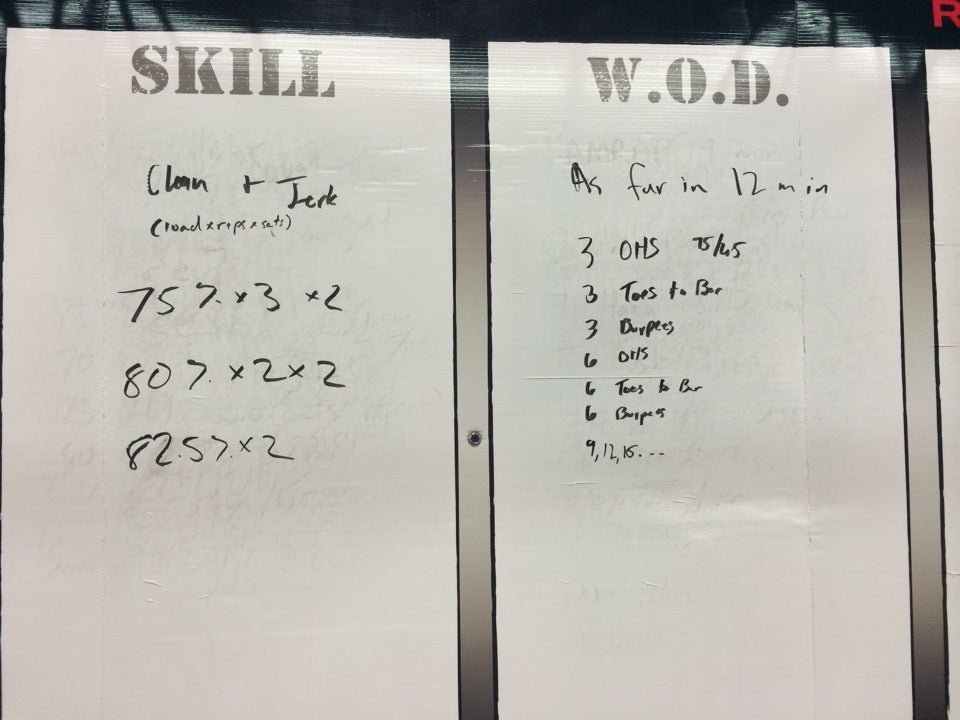 SKILL
Clean + Jerk
(load x reps x sets)
75% x 3 x 2
80% x 2 x 2
82.5% x 2
W.O.D.
As far in 12 min
3 OHS 75/45
3 Toes to Bar
3 Burpees
6 OHS
6 Toes to Bar
6 Burpees
9, 12, 15...
R